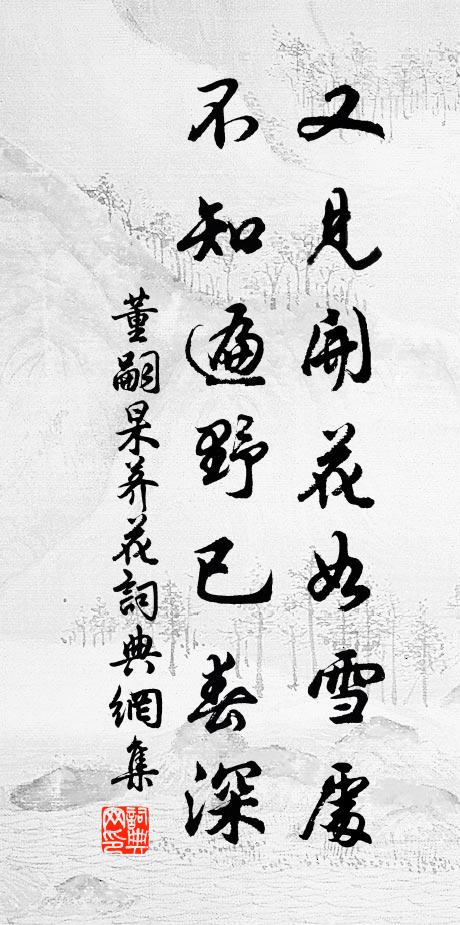 又見開花如雪處
不知遍野已春深
董嗣杲荞花詞典網集
詞典網印